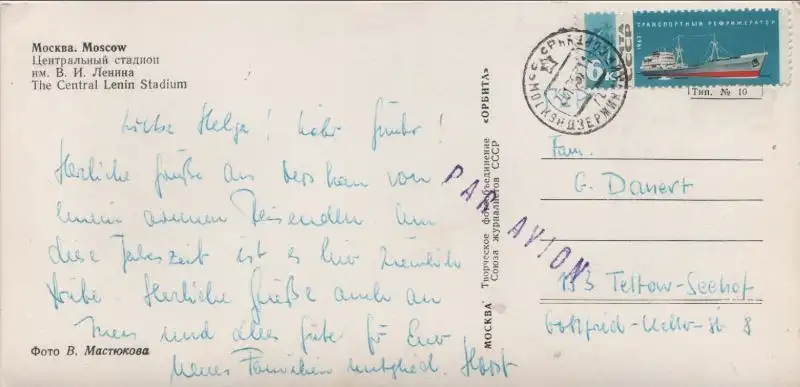 Москва. Moscow
Центральный стадион
им. В. И. Ленина
The Central Lenin Stadium
Liebe Helga! Lieber Günter!
Herzliche Grüße aus von
einem armen Reisenden. Um
diese Jahreszeit ist es hier ziemlich
trübe. Herzliche Grüße auch an
und alles Gute für Euer
neues Familienmitglied. Horst
Фото В. Мастюкова
МОСКВА Творческое фотообъединение «ОРБИТА»
Союза журналистов СССР
PAR AVION
ТРАНСПОРТНЫЙ РЕФРИЖЕРАТОР
6к
ПОЧТА СССР
1967
Тип. № 10
Fam.
G. Danert
153 Teltow-Seehof
Gottfried-Keller-Str 8